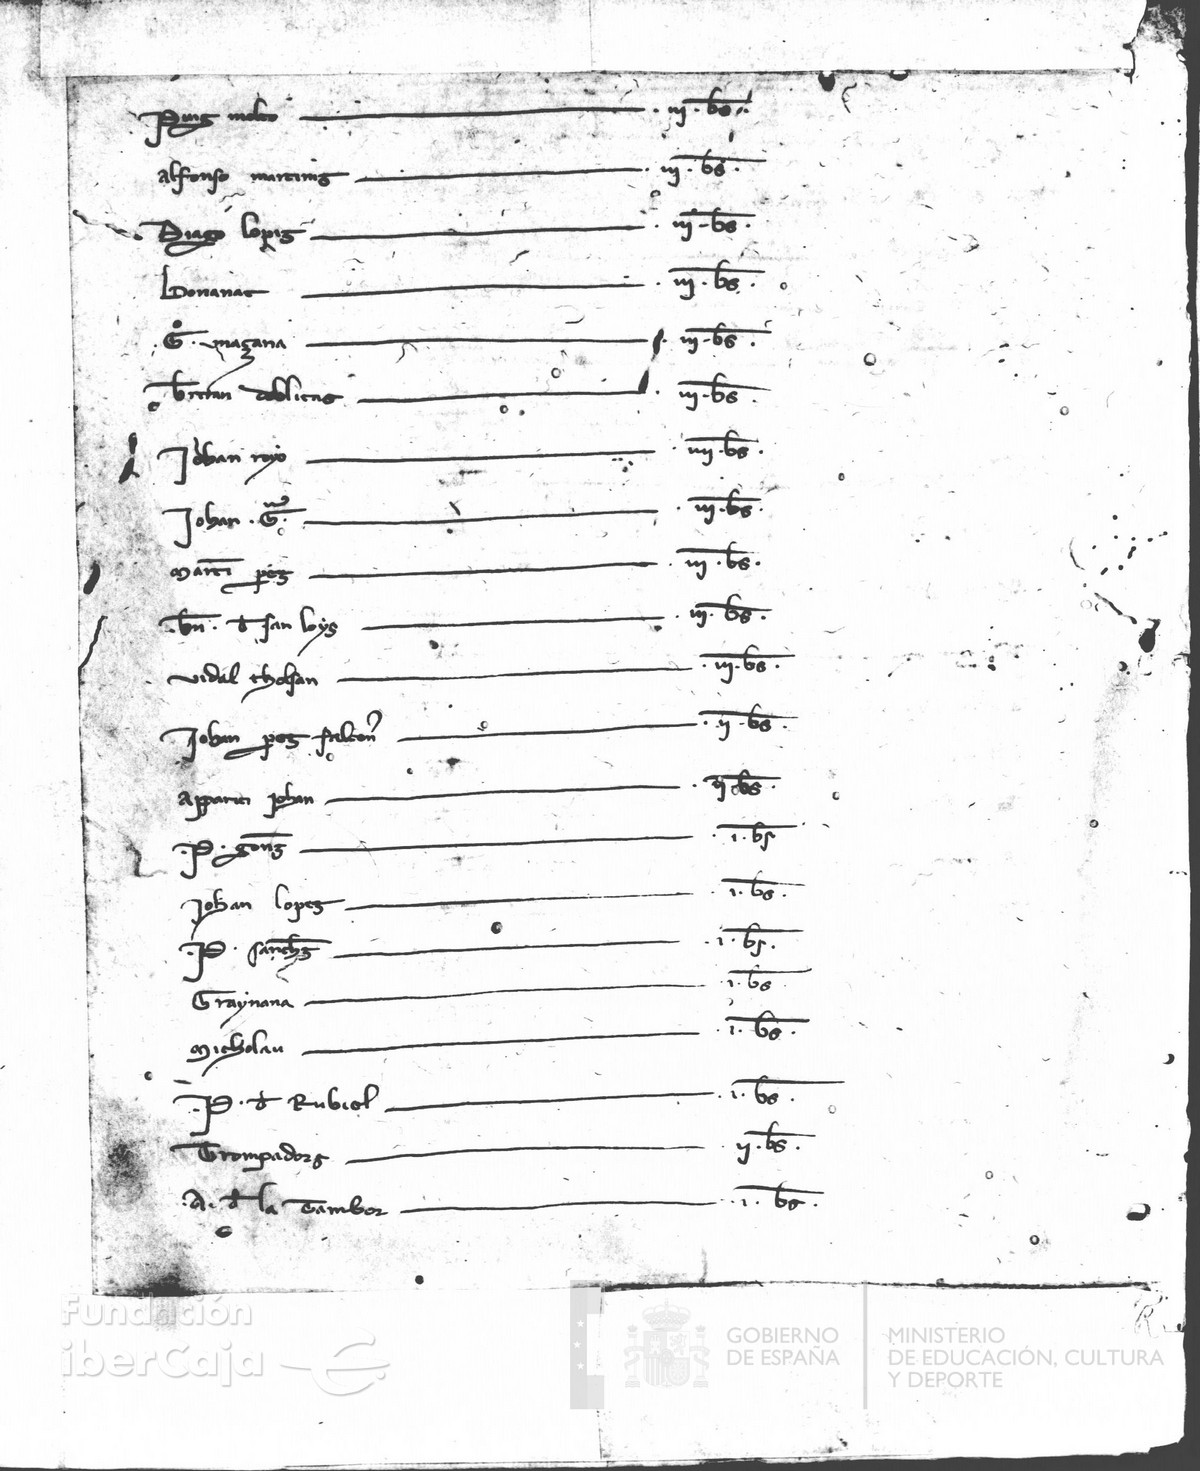 Puig molto · iij · bs ·
alfonso martinis · iij · bs ·
Diago lopis · iij · bs ·
Bonanat · iij · bs ·
· Gº · magana · iij · bs ·
bertran · iij · bs ·
Johan royo · iiij · bs ·
Johan · G · · iij · bs ·
Marti peris · iij · bs ·
· bn · d san loys · iij · bs ·
vidal tholsan · iij · bs ·
Johan pes · ij · bs ·
Apparici johan · ij · bs ·
· P · gons · i · bs
Johan lopes · i · bs ·
· P · sanchs · i · bs ·
Traynana · i · bs
Micholau · i · bs ·
· P · d Rubiol · i · bs ·
Trompadors ij · bs ·
· A · d la Tambor · i · bs ·
Fundación
iberCaja
GOBIERNO
DE ESPAÑA
MINISTERIO
DE EDUCACIÓN, CULTURA
Y DEPORTE